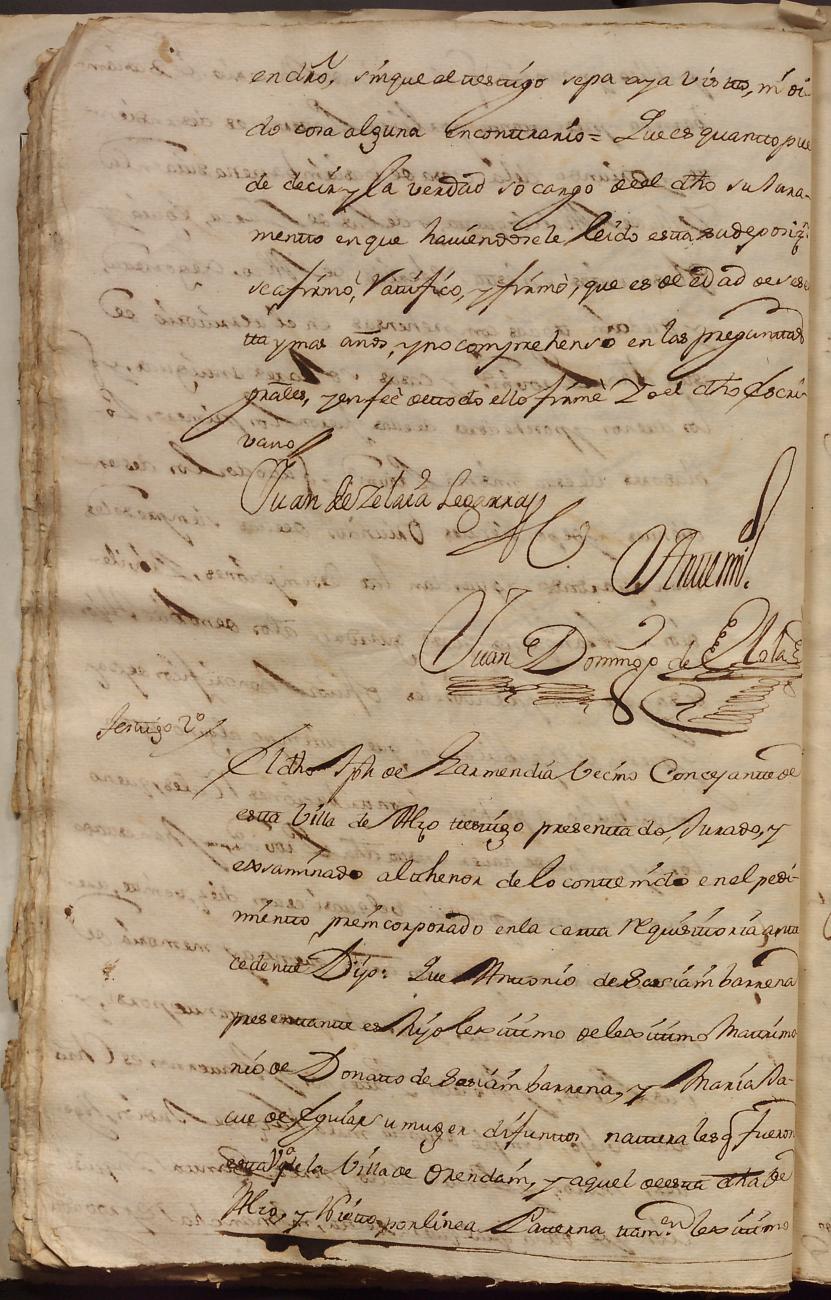 en dró, sin que el testigo sepa aya visto, ni oi-
do cosa alguna en contrario = Que es quanto pue
de decir y la verdad so cargo de el dho su Jura-
mento en que haviendosele leido esta su deposiz.n
se afirmó, Ratifico, y firmó, que es de edad de sese
tta y mas años, y no comprehenso en las preguntas
grâles, y en feé de todo ello firmé Yo el dho Escri
vano
Juan de Zelaia Legarra
Ante mi
Juan Domingo de
Testigo 2º
El dho Jph de Garmendia Vecino Concejante de
esta Villa de Alzo testigo presentado, Jurado, y
exsaminado al thenor de lo contenido en el pedi-
mento preincorporado en la carta requisitoria ante
cedente Dijo: Que Antonio de Sasiambarrena
presentante es hijo lexitimo de lexitimo Matrimo
nio de Donatto de Sasiambarrena, y Maria
de su muger difuntos naturales q fueron
esta de la Villa de Orendain, y aquel de esta dha de
Alzo, y Nieto por linea Paterna tam.en lexitimo